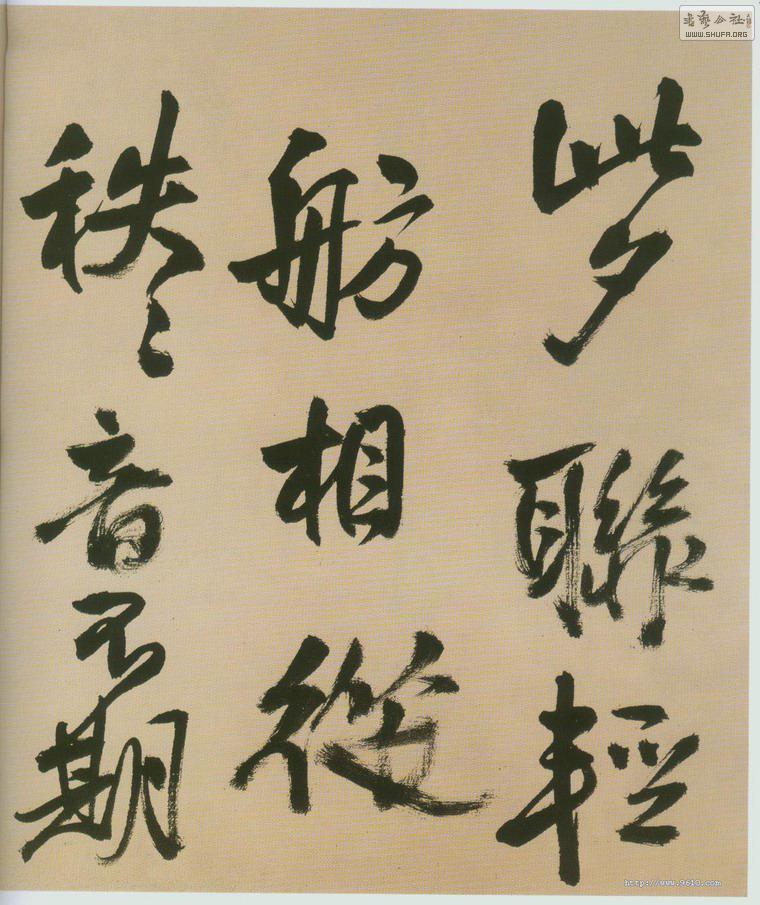 此夕聯輕
舫相從
秩〻音不期
WWW.SHUFA.ORG
http://www.9610.com